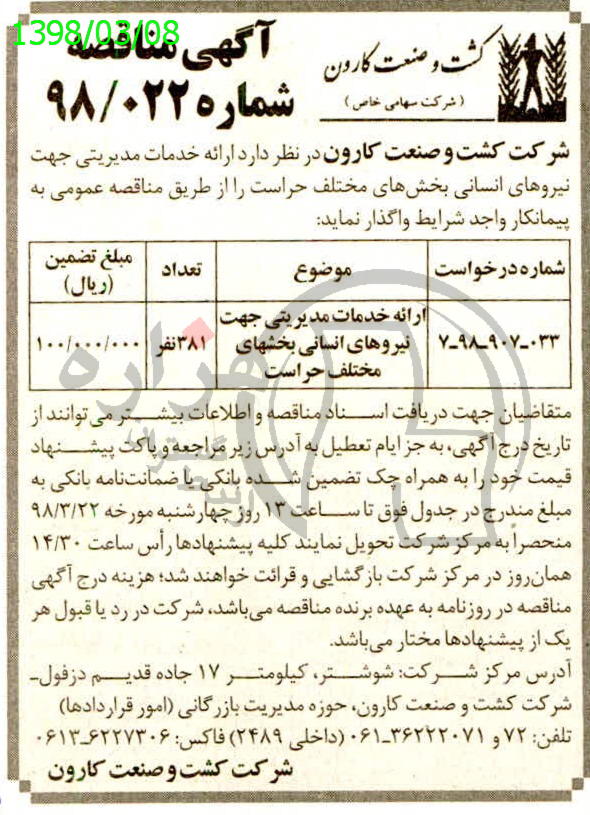 1398/03/08
آگهی مناقصه
شماره ۹۸/۰۲۲
کشت و صنعت کارون
(شرکت سهامی خاص)
شرکت کشت و صنعت کارون در نظر دارد ارائه خدمات مدیریتی جهت
نیروهای انسانی بخش‌های مختلف حراست را از طریق مناقصه عمومی به
پیمانکار واجد شرایط واگذار نماید:
شماره درخواست موضوع تعداد مبلغ تضمین
(ریال)
ارائه خدمات مدیریتی جهت
۷-۹۸-۹۰۷-۰۳۳ نیروهای انسانی بخشهای ۳۸۱نفر ۱۰۰/۰۰۰/۰۰۰
مختلف حراست
متقاضیان جهت دریافت اسناد مناقصه و اطلاعات بیشتر می‌توانند از
تاریخ درج آگهی، به جز ایام تعطیل به آدرس زیر مراجعه و پاکت پیشنهاد
قیمت خود را به همراه چک تضمین شده بانکی یا ضمانت‌نامه بانکی به
مبلغ مندرج در جدول فوق تا ساعت ۱۳ روز چهارشنبه مورخه ۹۸/۳/۲۲
منحصراً به مرکز شرکت تحویل نمایند کلیه پیشنهادها رأس ساعت ۱۴/۳۰
همان‌روز در مرکز شرکت بازگشایی و قرائت خواهند شد؛ هزینه درج آگهی
مناقصه در روزنامه به عهده برنده مناقصه می‌باشد، شرکت در رد یا قبول هر
یک از پیشنهادها مختار می‌باشد.
آدرس مرکز شرکت: شوشتر، کیلومتر ۱۷ جاده قدیم دزفول-
شرکت کشت و صنعت کارون، حوزه مدیریت بازرگانی (امور قراردادها)
تلفن: ۷۲ و ۳۶۲۲۲۰۷۱-۰۶۱ (داخلی ۲۴۸۹) فاکس: ۶۲۲۷۳۰۶-۰۶۱۳
شرکت کشت و صنعت کارون
هزاره